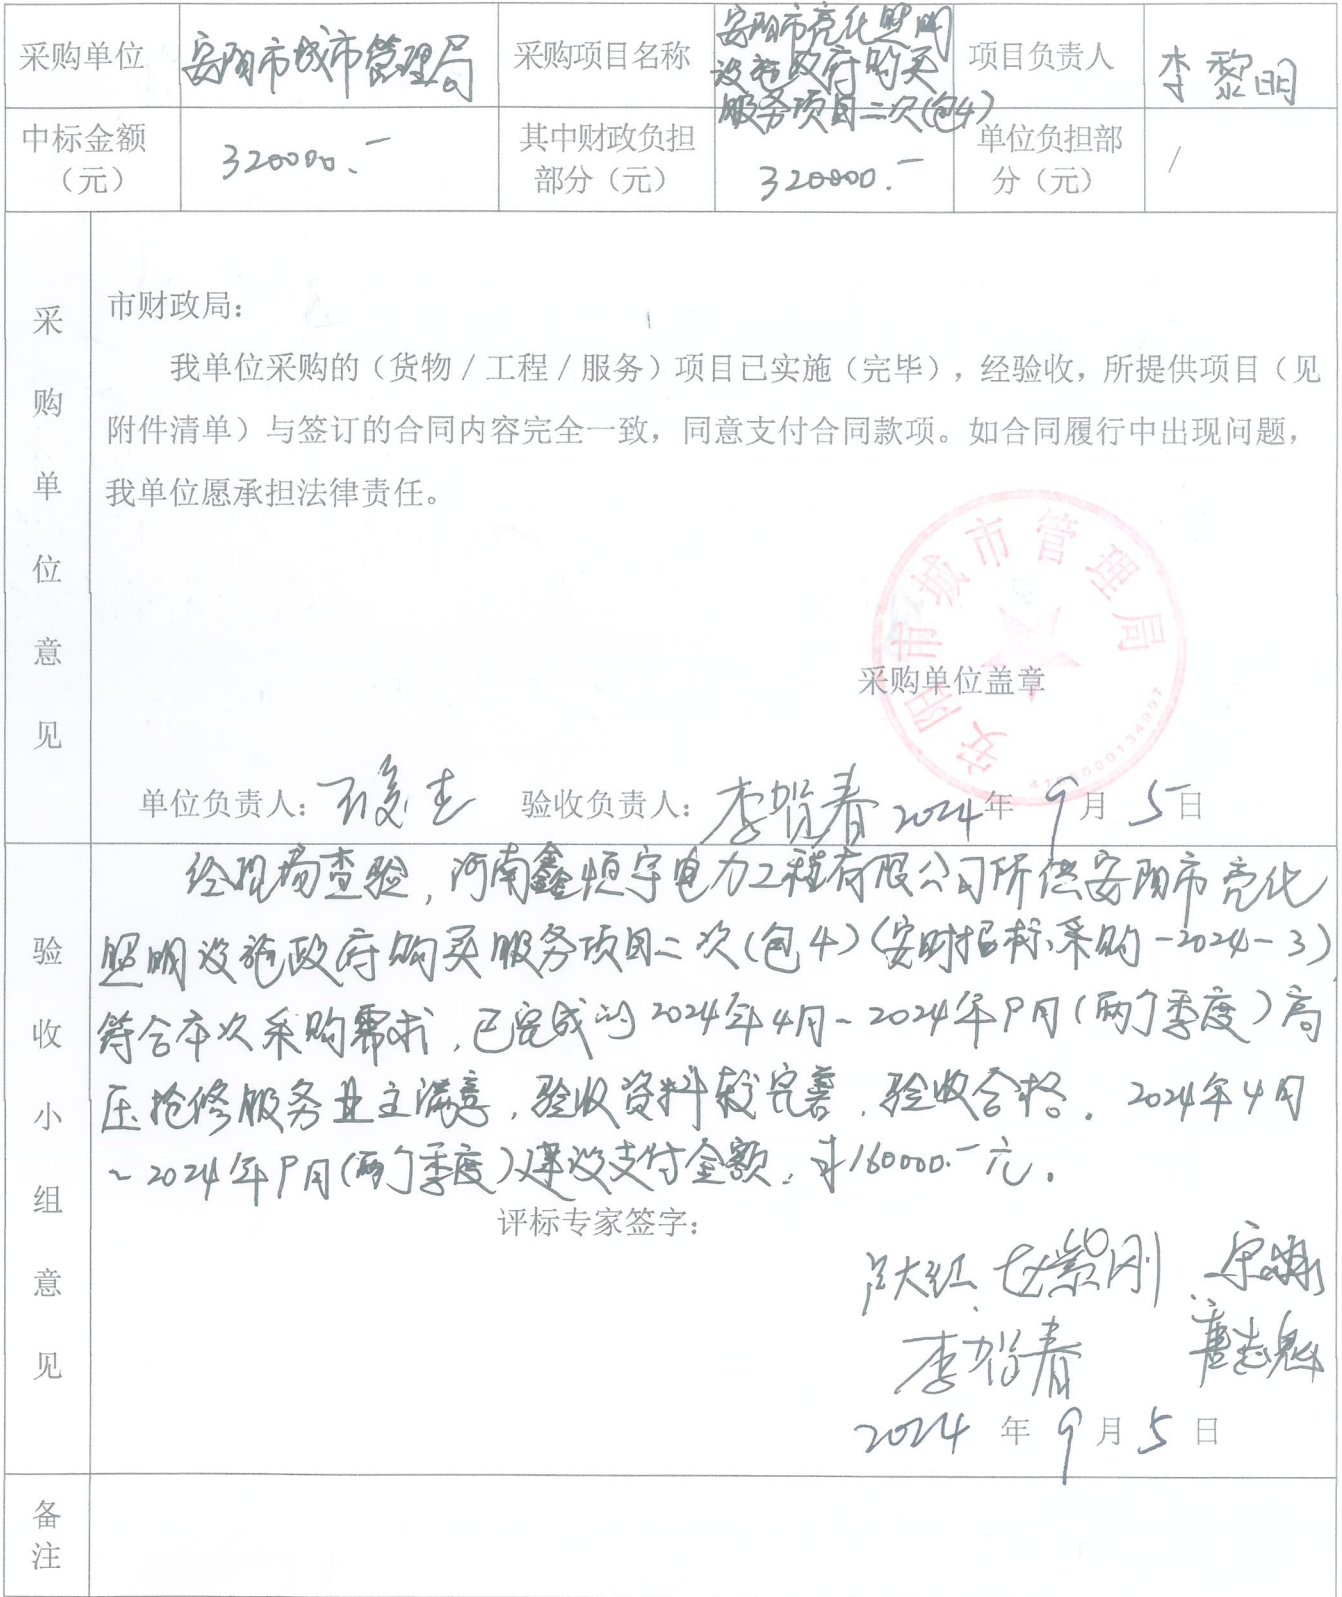 采购单位 安阳市城市管理局 采购项目名称 安阳市亮化照明设施政府购买服务项目二次(包4) 项目负责人 李黎明
中标金额（元） 320000.- 其中财政负担部分（元） 320000.- 单位负担部分（元） /
采购单位意见
市财政局：
我单位采购的（货物/工程/服务）项目已实施（完毕），经验收，所提供项目（见
附件清单）与签订的合同内容完全一致，同意支付合同款项。如合同履行中出现问题，
我单位愿承担法律责任。
安阳市城市管理局
采购单位盖章
单位负责人： 验收负责人：李贺春 2024年9月5日
验收小组意见
经现场查验，河南鑫恒宇电力工程有限公司所供安阳市亮化
照明设施政府购买服务项目二次(包4)(安财招标采购-2024-3)
符合本次采购需求，已完成的2024年4月~2024年9月(两个季度)高
压抢修服务业主满意，验收资料较完善，验收合格。2024年4月
~2024年9月(两个季度)建议支付金额：¥160000.-元。
评标专家签字：
李贺春
2024年9月5日
备注